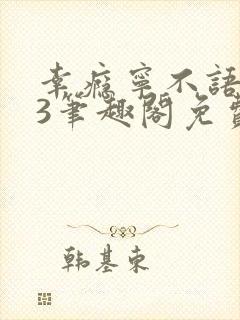 幸瘾宁不語
3笔趣阁免費
韩基东